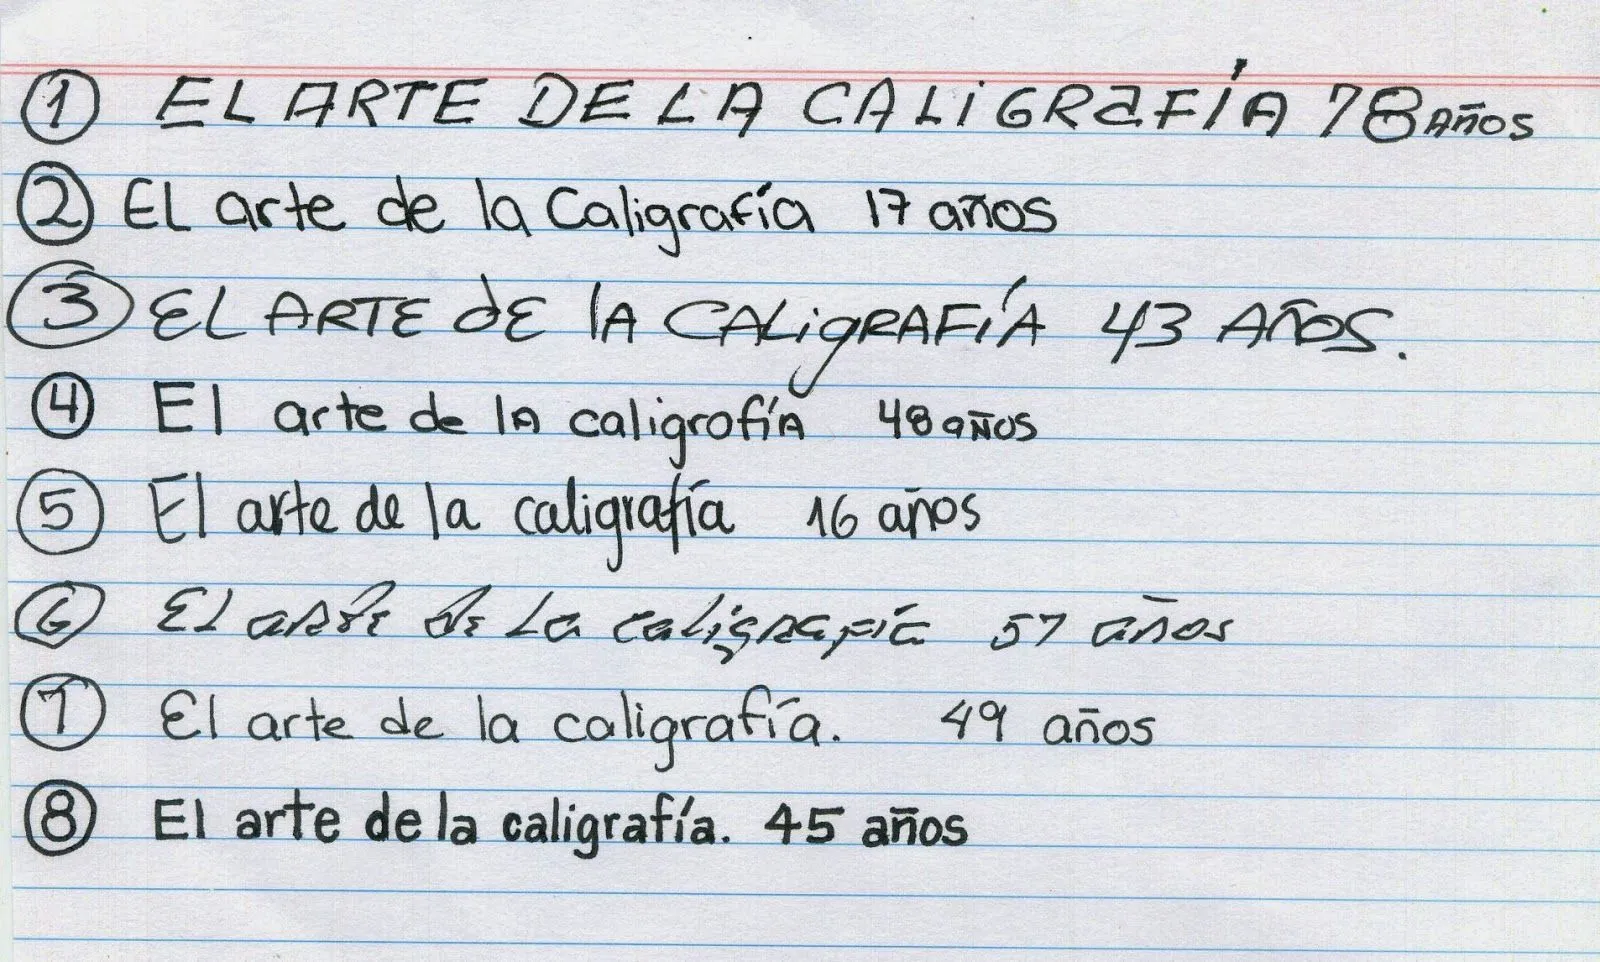 1 EL ARTE DE LA CALiGRaFÍA 78 AÑOS
2 EL arte de la Caligrafía 17 años
3 EL ARTE dE lA CALigRAFÍA 43 AÑOS.
4 El arte de lA caligrofíA 48 añOS
5 El arte de la caligrafía 16 años
6 El arte de La caligrafía 57 años
7 El arte de la caligrafía. 49 años
8 El arte de la caligrafía. 45 años